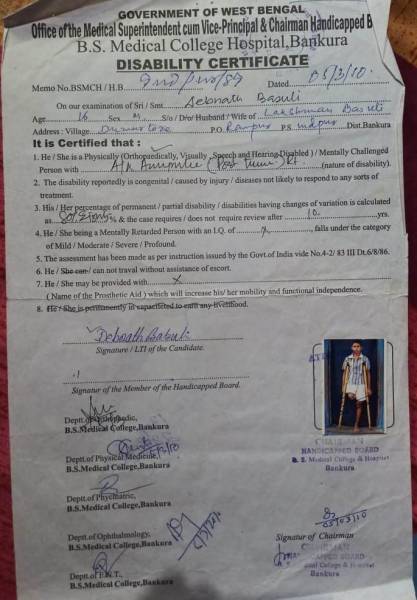 GOVERNMENT OF WEST BENGAL
Office of the Medical Superintendent cum Vice-Principal & Chairman Handicapped B
B.S. Medical College Hospital,Bankura
DISABILITY CERTIFICATE
Memo No.BSMCH / H.B. Dated 05/3/10.
On our examination of Sri / Smt. Debnath Basuli
Age 16 Sex M S/o / D/o/ Husband / Wife of Lakshman Basuli
Address : Village P.O. Ranpur P.S. Indpur Dist.Bankura
It is Certified that :
1. He / She is a Physically (Orthopaedically, Visually, Speech and Hearing Disabled ) / Mentally Challenged
Person with (nature of disability).
2. The disability reportedly is congenital / caused by injury / diseases not likely to respond to any sorts of
treatment.
3. His / Her percentage of permanent / partial disability / disabilities having changes of variation is calculated
as % & the case requires / does not require review after 10 yrs.
4. He / She being a Mentally Retarded Person with an I.Q. of x, falls under the category
of Mild / Moderate / Severe / Profound.
5. The assessment has been made as per instruction issued by the Govt.of India vide No.4-2/ 83 III Dt.6/8/86.
6. He / She can/ can not traval without assistance of escort.
7. He / She may be provided with x
( Name of the Prosthetic Aid ) which will increase his/ her mobility and functional independence.
8. He / She is permanently in capaciteted to earn any livelihood.
Debnath Basuli
Signature / LTI of the Candidate.
Signatur of the Member of the Handicapped Board.
Deptt.of Orthopaedic,
B.S.Medical College,Bankura
Deptt.of Physical Medicine,
B.S.Medical College,Bankura
Deptt.of Psychiatric,
B.S.Medical College,Bankura
Deptt.of Ophthalmology,
B.S.Medical College,Bankura
Deptt.of E.N.T.,
B.S.Medical College,Bankura
CHAIRMAN
HANDICAPPED BOARD
B. S. Medical College & Hospital
Bankura
05/03/10
Signatur of Chairman
CHAIRMAN
HANDICAPPED BOARD
B. S. Medical College & Hospital
Bankura